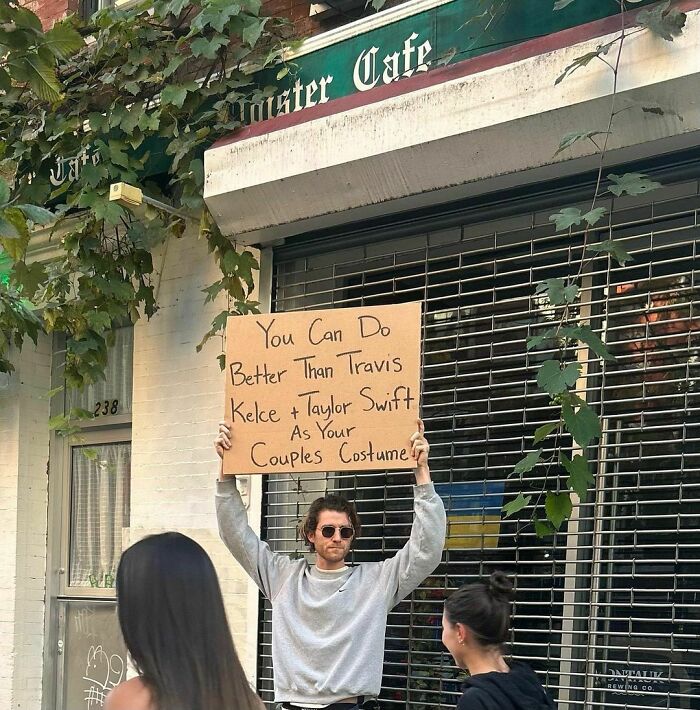 Cafe
Cafe
238
You Can Do
Better Than Travis
Kelce + Taylor Swift
As Your
Couples Costume
REWING CO.